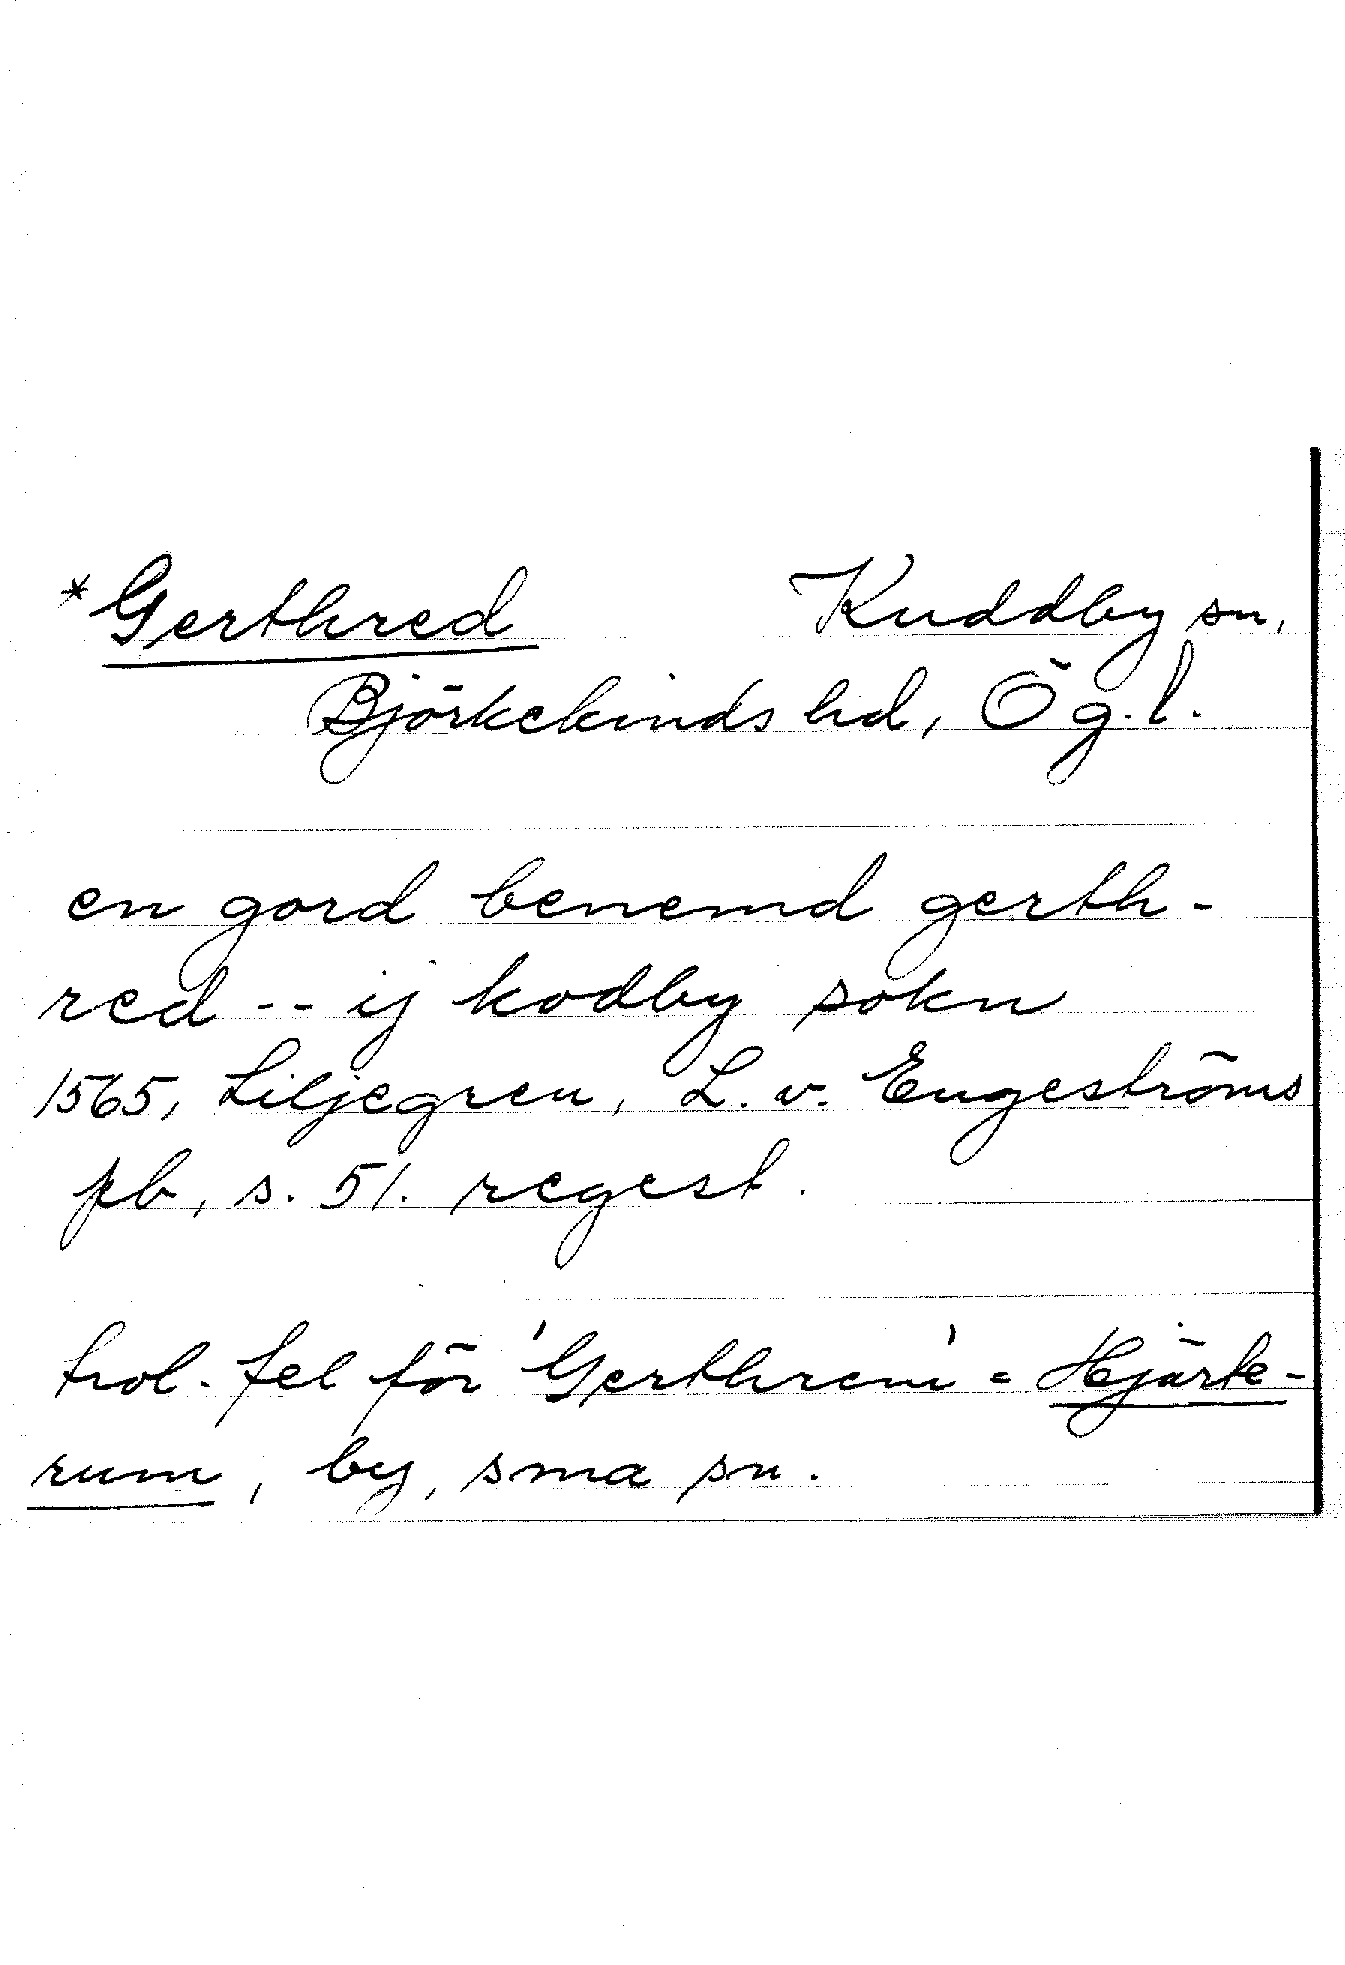 *Gerthred Kuddby sn,
Björkekinds hd, Ög.l.
en gord benemd gerth-
red -- ij kodby sokn
1565, Liljegren, L. v. Engeströms
pb, s. 51. regest.
trol. fel för 'Gerthrem' = Hjärte-
rum, by, sma sn.